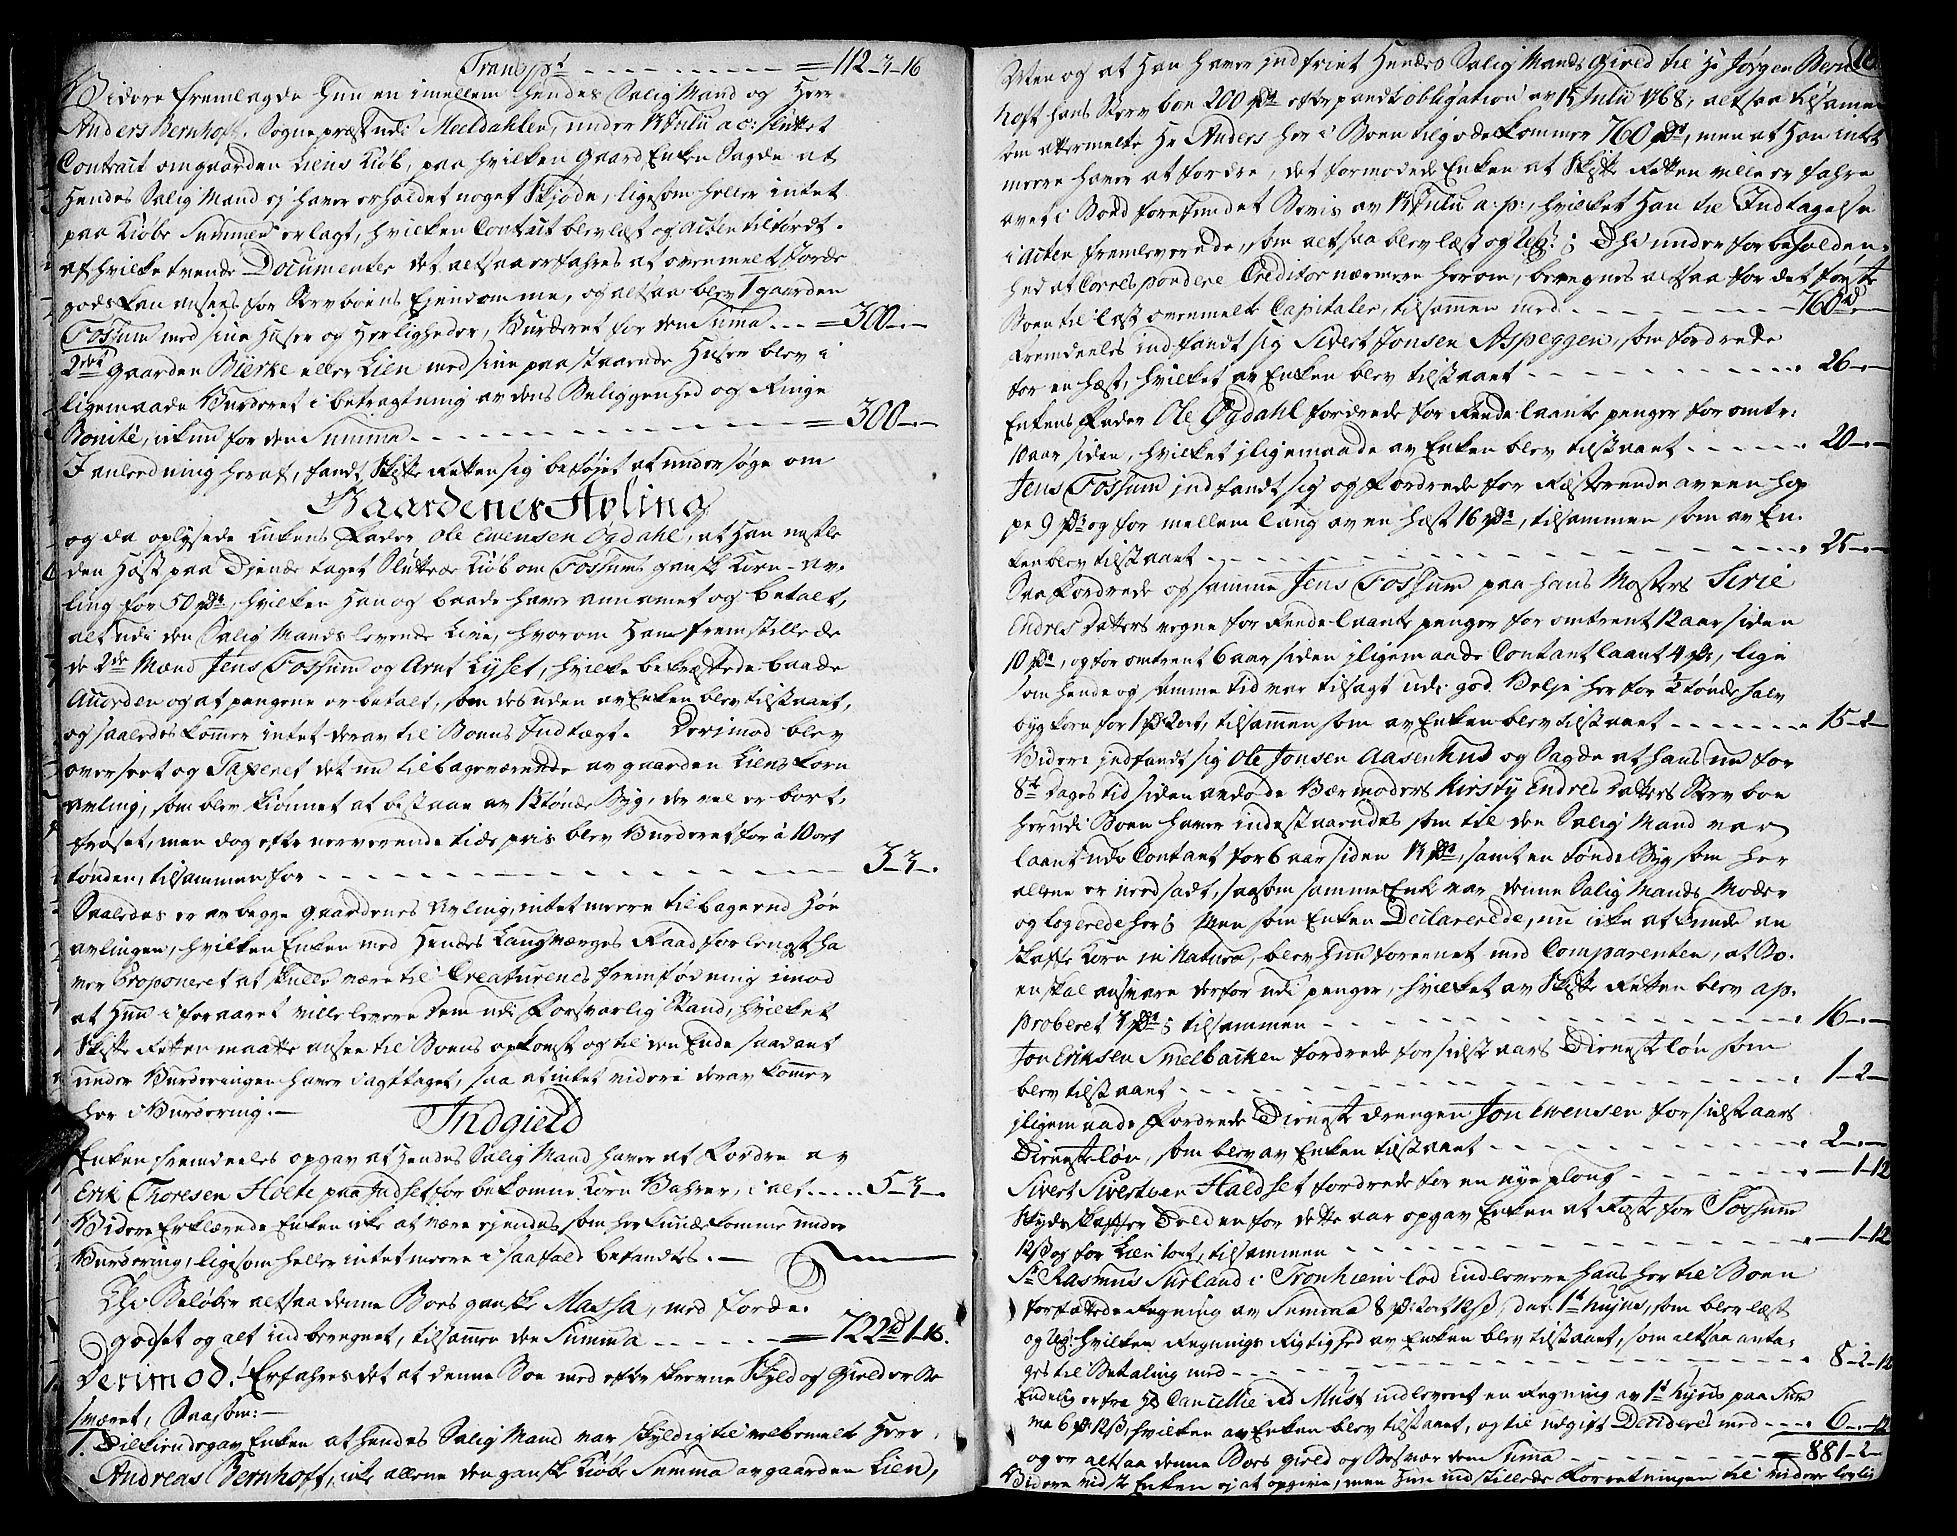 Transpt. - - - - - - - - = 112-3-16
Videre fremlagde Hun en imellem Hendes Salig Mand og Herr
Anders Bernhoft, Sognepræst udi Meeldahlen, under 13 Julii a c: sluttet
Contract om gaarden Liens Kiøb, paa hvilken Gaard Enken Sagde at
Hendes Salig Mand ej haver erholdet noget Skjøde, ligesom heller intet
paa Kiøbe Summen erlagt, hvilken Contract blev læst og acten tilført.
af hvilke tvende Documenter det altsaa erfahres at ovenmeldte Jorde
gods kan ansees for Stervboens Ejendomme, og altsaa blev 1 gaarden
Fossum med sine Huser og Herligheder, Vurderet for den Suma - - = 300 - -
2det gaarden Bierke eller Lien med sine paastaaende Huser blev i
ligemaade Vurderet i betragtning av dens Beliggenhed og Ringe
Bonité, ickun for den Summa - - - - - - - = 300 - -
I anledning heraf, fandt Skifte Retten sig beføjet at undersøge om
Gaardenes Avling
og da oplysede Enkens Fader Ole Evensen Ogdahl, at Han nestle
den Høst paa Djenæ taget Sluttede Kiøb om Fossums gansk Korn-av-
ling for 50 rdr, hvilken Han og baade haver annamet og betalt,
alt udi den Salig Mands levende Live, hvorom Han fremstillede
de 2de Mænd Jens Fossum og Arnt Lyset, hvilke bekræftede baade
Accorden og at pengene er betalt, som desuden av Enken blev tilstaaet,
og saaledes kommer intet derav til Boens Indtægt. Derimod blev
overseet og Taxeret det nu tilbageværende av gaarden Liens Korn
avling, som blev skiønnet at bestaae av 1½ tønde Byg, der vel er bort-
frøset, men dog efter nerverende tids pris blev Vurderet for à 10 ort
tønden, tilsammen for - - - - - - - 3-3-
Saaledes er av begge gaardenes Avling, intet mere tilbage end Høe
avlingen, hvilken Enken med Hendes Laugværges Raad, for lengst ha
ver Proponeret at skulle være til Creaturenes fremfødning imod
at Hun i foraaret ville levere dem udi Forsvarlig Stand, hvilket
Skifte Retten maatte ansee til Boens opkomst og til den Ende saadant
under Vurderingen haver iagttaget, saa at intet videre derav kommer
her i Vurdering. -
Indgield
Enken fremdeeles opgav at Hendes Salig Mand haver at Fordre av
Erik Thoresen Holte paa Indset for bekomne Korn Vahrer, i alt - - - 5-3-
Videre Erklærede Enken icke at være ejendes som her kunde komme under
Vurdering, ligesom heller intet mere i saafald befandtes. -
Thi Beløber altsaa denne Boes ganske Massa, med Jorde-
godset og alt indberegnet, tilsamen den Summa - - - - = 722rd 1-16.
Derimod! Erfahres det at denne Boe med efterskrevne Skyld og Gield er Be
sværet, Saasom: -
1. Tilkiendegav Enken at hendes Salig Mand var skyldig til velbemelt Herr
Andreas Bernhoft, icke allene den gansk Kiøbe Summa av gaarden Lien,
Men og at Han haver indfriet Hendes Salig Mands Gield til Hr Jørgen Bern
hoft hans Sterv boe 200 rdr efter pandtobligation av 15 Julii 1768, altsaa tilsamen
som ottermelte Hr Anders her i Boen tilgode kommer 760 rdr, men at Han intet
mere haver at fordre, det formodede Enken at Skifte Retten ville erfahre
avet i Boed forefundet Bevis av 13 Julii a: p:, hvilket Han til Indtagelse
i acten fremleverede, som altsaa blev læst og ; Thi under forbeholden-
hed at Correspondere Creditor nærmere herom, beregnes altsaa for det første
Boen til last ovenmelte Capitaler, tilsammen med - - - - - - 760rd
Fremdeeles indfandt sig Sivert Jonsen Aspeggen, som fordrede
for en Hæst, hvilket av Enken blev tilstaaet - - - - - - 26 - -
Enkens Fader Ole Ogdahl fordrede for Rende laante penger for omtr:
10 aar siden, hvilket iligemaade av Enken blev tilstaaet - - - - - 20 - -
Jens Fossum indfandt sig og Fordrede for Resterende av een hop
pe 9 rdr og for mellemlaug av en hæst 16 rdr, tilsammen som av En-
ken blev tilstaaet - - - - - - - - 25 - -
Saa Fordrede og samme Jens Fossum paa hans Mosters Sirie
Endres Datters vegne for Rende laante penger for omtrent 12 aar siden
10 rdr, og for omtrent 6 aar siden iligemaade Contant laant 4 rdr, lige
som hende og samme tid var tilsagt udi god Velje her for ½ tønde halv
bygkorn for 1 rdr 2 ort, tilsammen som av Enken blev tilstaaet - - - - 15-2-
Videre indfandt sig Ole Jonsen Aasenhus og Sagde at hans nu for
8te Dages tid siden avdøde Værmoders Kirsty Endres Datters Sterv boe
herudi Boen haver indestaaendes som til den Salig Mand var
laant udi Contant for 6 aar siden 13 rdr, samt en tønde Byg som her
allene er nerdsadt, saasom samme Enk var denne Salig Mands Moder
og Logerede her; Men som Enken Declarerede, nu icke at kunde an
skaffe Korn in Natura, blev hun foreenet med Comparenten, at Bo-
en skal ansvare derfor udi penger, hvilket av Skifte Retten blev ap-
proberet 3 rdr; tilsammen - - - - - - 16 - -
Jon Eriksen Smelbacken fordrede for sidst aars Dienestløn som
blev tilstaaet - - - - - - - - 1-2-
iligemaade Fordrede Dienest drengen Jon Evensen for sidst aars
Dienesteløn, som blev av Enken tilstaaet - - - - - - 2 - -
Sivert Sivertsen Haldset fordrede for en nye ploug - - - - - 1-12
Skydsskaffer Tolden for dette aar opgav Enken at Reste for Fossum
12 ß og for Lien 1 ort, tilsammen - - - - - - 1-12
Sr Rasmus Surland i Tronhiem lod indlevere hans her til Boen
forfattede Regning av Summa 8 rd: 2 ort 12 ß, dat: 1st hujus, som blev læst
og hvilken Regnings Rigtighed av Enken blev tilstaaet, som altsaa anta-
ges til Betaling med - - - - - - - 8-2-12
Endelig er fra Hr Cancellie Rd Must indleveret en Regning av 1st hujus paa Sum
ma 6 rd 12 ß, hvilken av Enken blev tilstaaet, og til udgift Decideres med - - - 6 - 12
og er altsaa denne Boes gield og Besvær den Suma - - - - - = 881-2-
Videre vidste Enken ej at opgive, men Hun indstillede Forretningen til videre lovlig